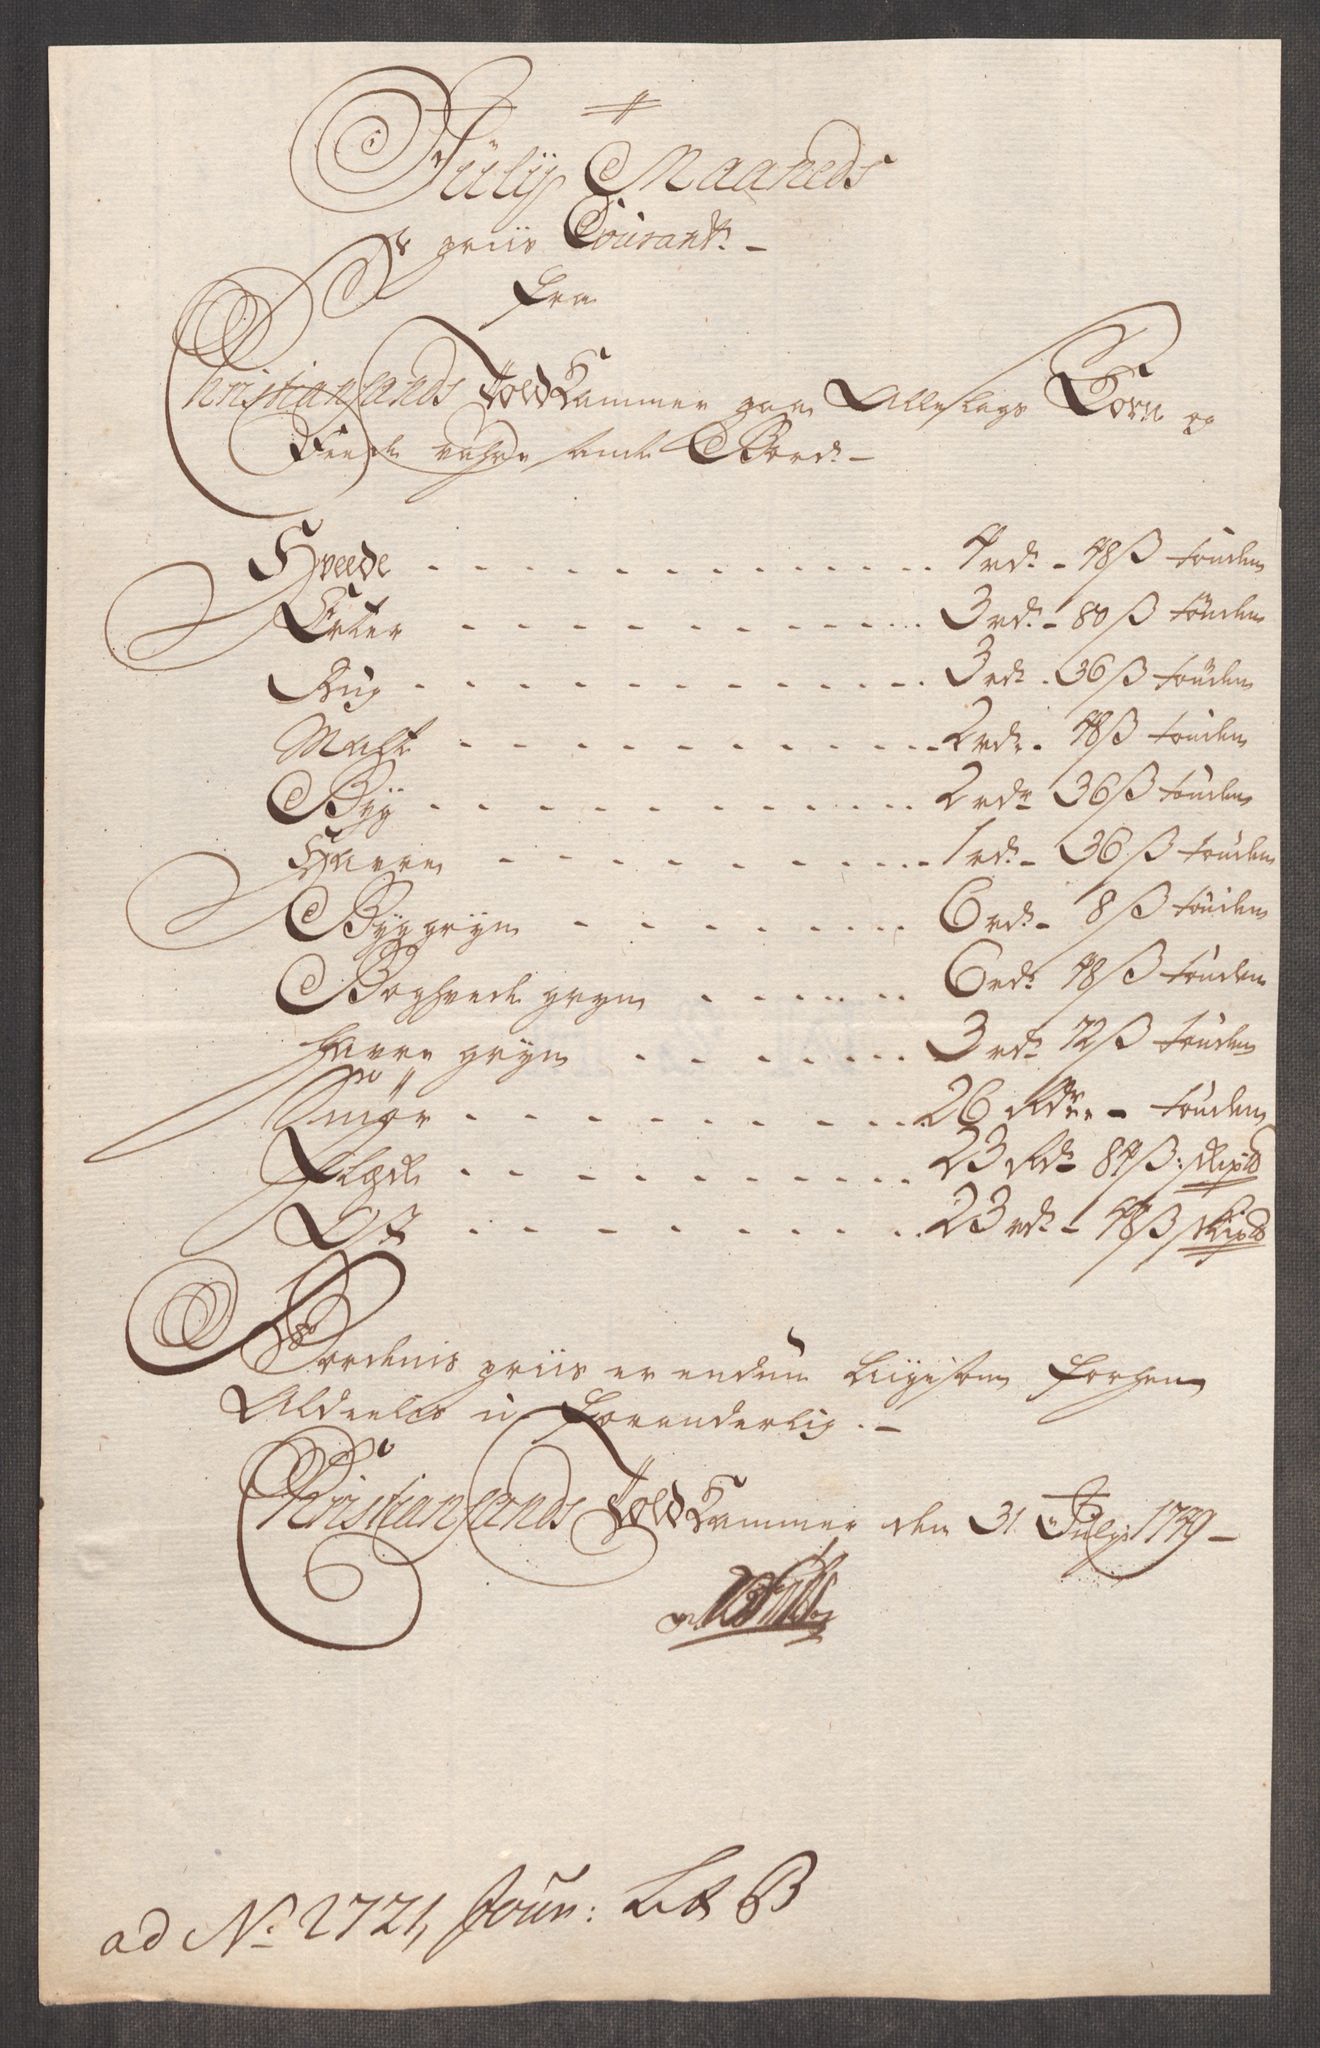 Julij Maaneds
priis Courant.
fra
Christiansands Told Kammer paa Alleslags Korn og
Feede vahre samt Bord.
Hveede 4 rd. 48 ß tønden
Erter 3 rd. 80 ß tønden
Rug 3 rd. 36 ß tønden
Malt 2 rd. 48 ß tønden
Byg 2 rd. 36 ß tønden
Havre 1 rd. 36 ß tønden
Byggryn 6 rd. 8 ß tønden
Boghvede gryn 6 rd. 48 ß tønden
Havre gryn 3 rd. 72 ß tønden
Smør 26 Rdr. - tønden
Flesk 23 Rd. 84 ß: skip℔
Ost 23 rd. 48 ß skip℔
Bordenis priis er endnu Liigesom forhen
Aldeelis u-foranderlig.
Christiansands Told Kammer den 31. Julij: 1739
ad No. 2721, Jour: Lit B